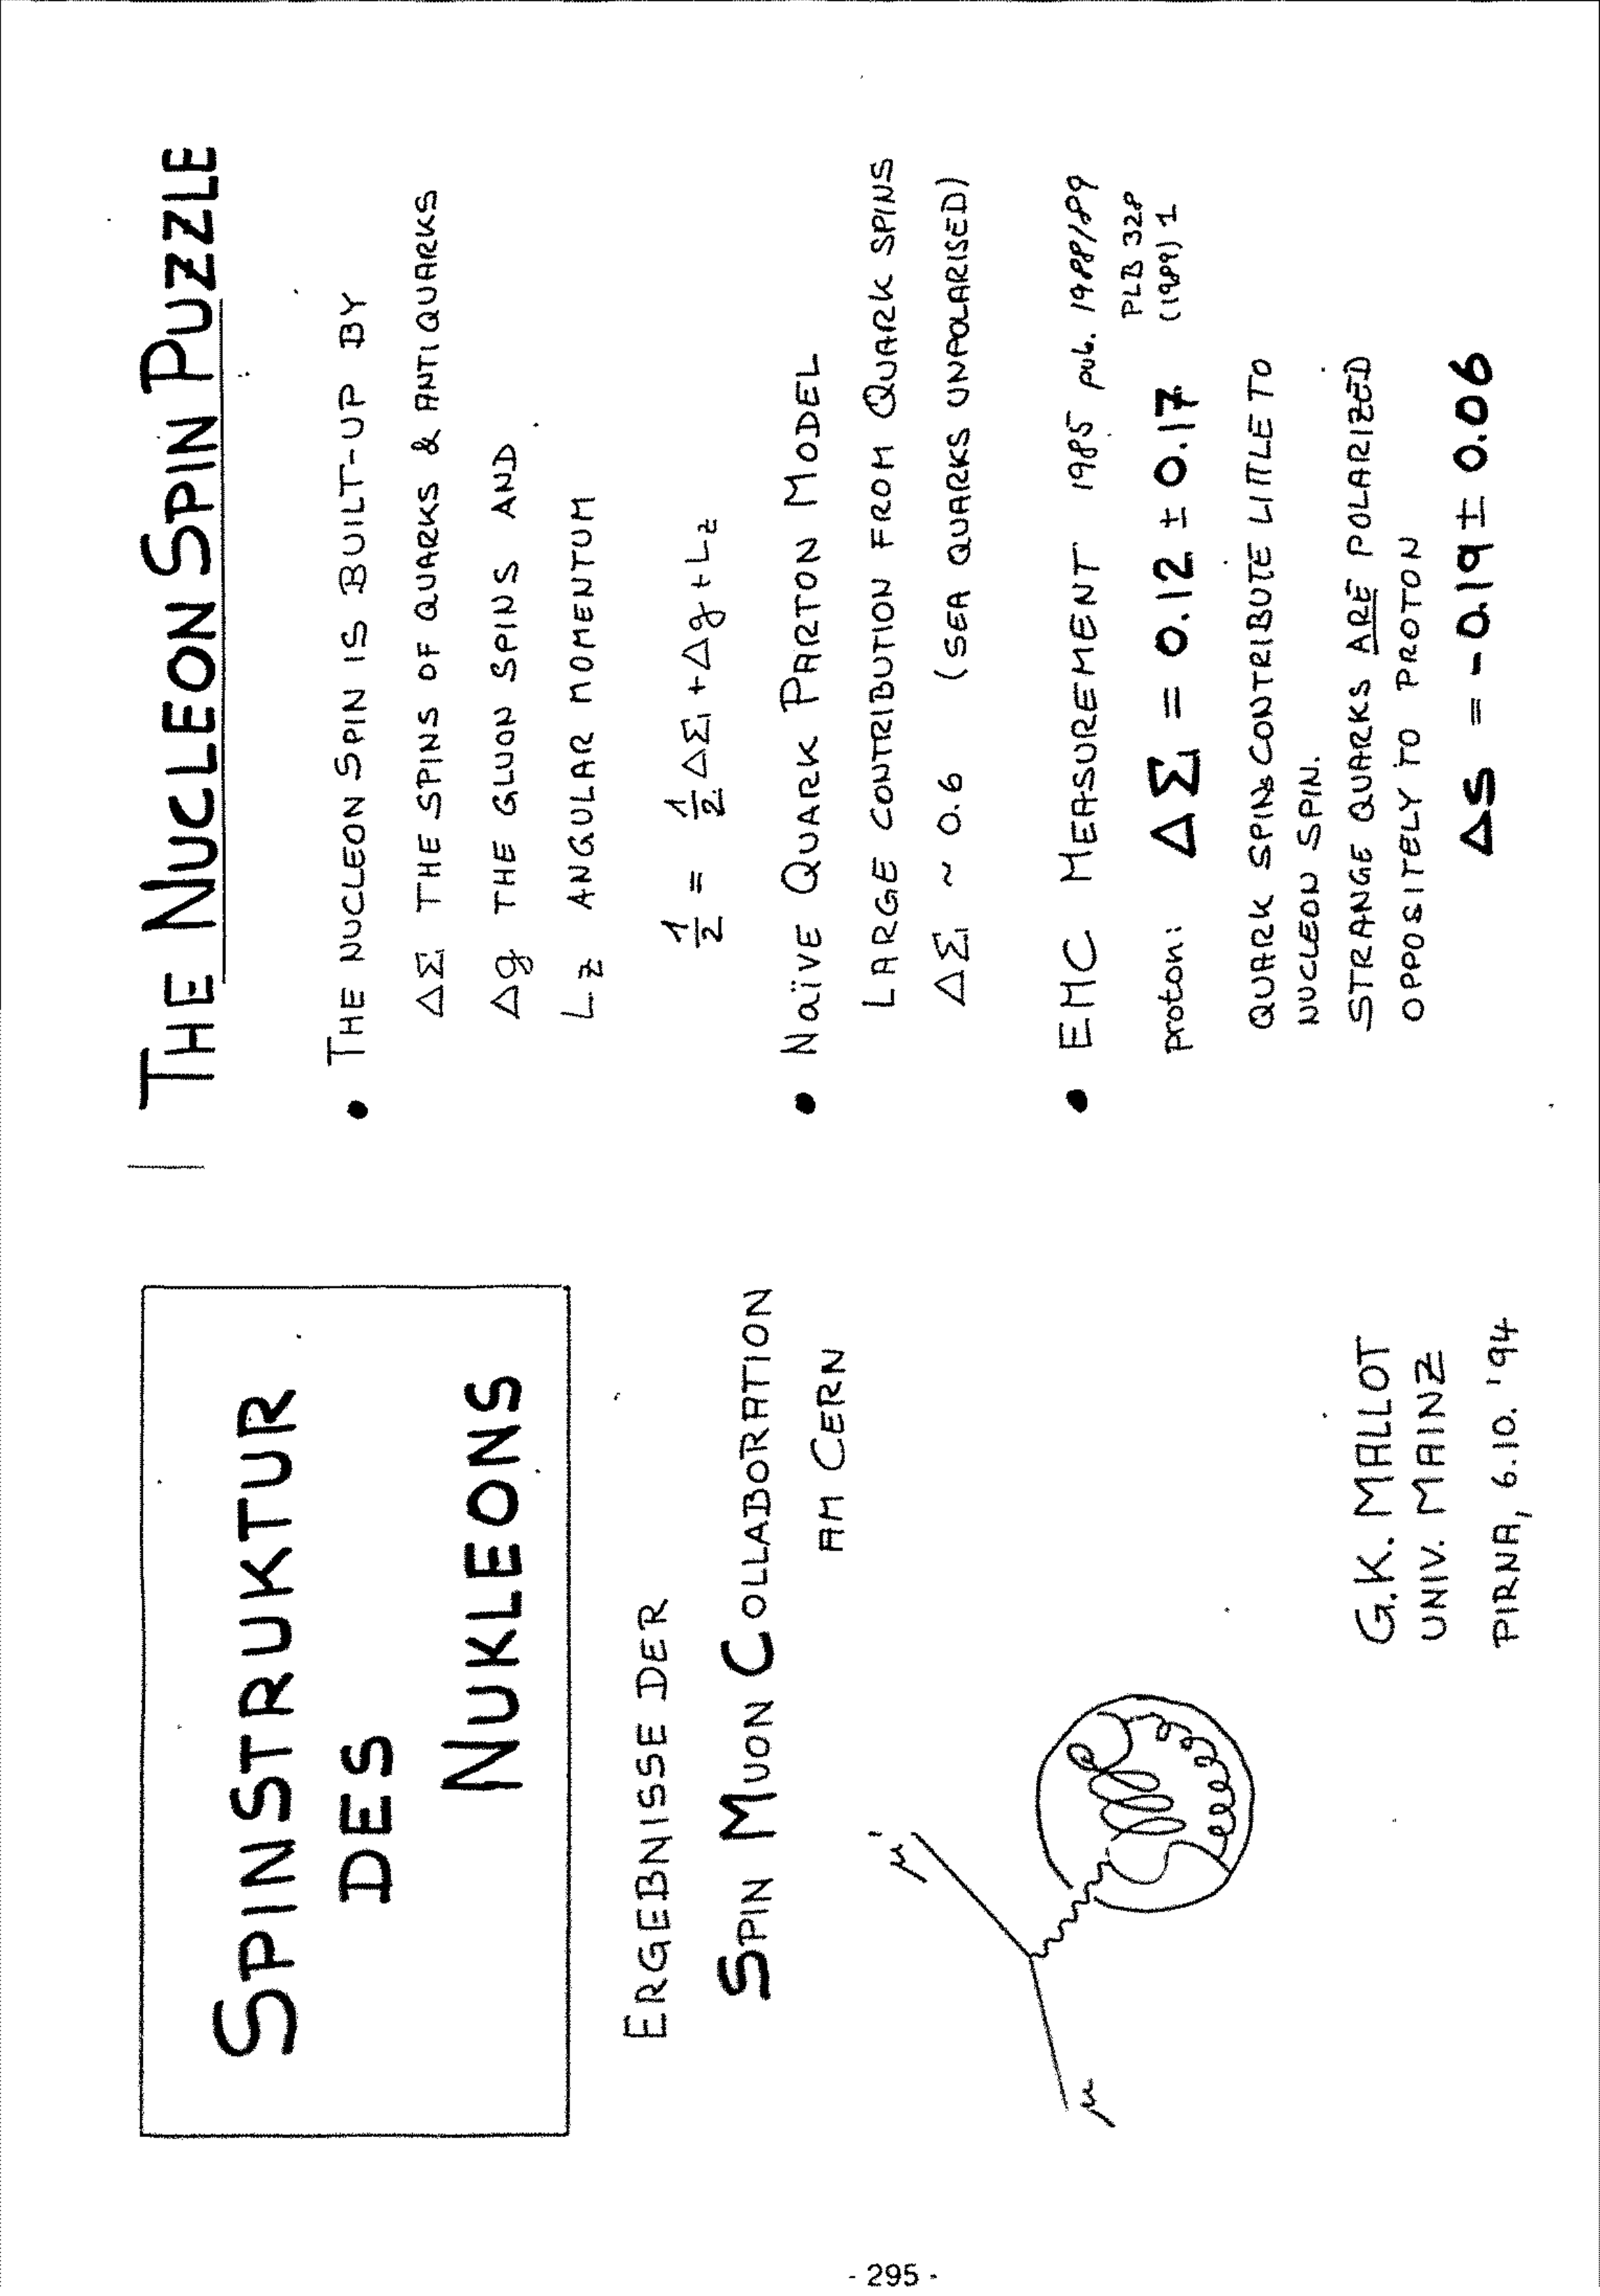 SPINSTRUKTUR
DES
NUKLEONS
ERGEBNISSE DER
SPIN MUON COLLABORATION
AM CERN
μ
μ'
G.K. MALLOT
UNIV. MAINZ
PIRNA, 6.10. '94
THE NUCLEON SPIN PUZZLE
• THE NUCLEON SPIN IS BUILT-UP BY
ΔΣ THE SPINS OF QUARKS & ANTIQUARKS
Δg THE GLUON SPINS AND
Lz ANGULAR MOMENTUM
1/2 = 1/2 ΔΣ + Δg + Lz
• NAÏVE QUARK PARTON MODEL
LARGE CONTRIBUTION FROM QUARK SPINS
ΔΣ ~ 0.6 (SEA QUARKS UNPOLARISED)
• EMC MEASUREMENT 1985 pub. 1988/89
proton: ΔΣ = 0.12 ± 0.17 PLB 328
(1989) 1
QUARK SPINS CONTRIBUTE LITTLE TO
NUCLEON SPIN.
STRANGE QUARKS ARE POLARIZED
OPPOSITELY TO PROTON
ΔS = -0.19 ± 0.06
- 295 -